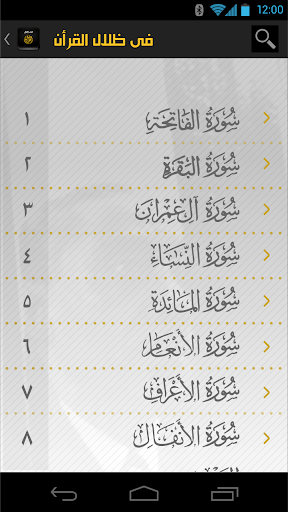 12:00
في ظلال القرأن
سُورَةُ الفَاتِحَةِ ١
سُورَةُ البَقَرَةِ ٢
سُورَةُ آلِ عِمْرَانَ ٣
سُورَةُ النِّسَاءِ ٤
سُورَةُ المَائدَةِ ٥
سُورَةُ الأَنْعَامِ ٦
سُورَةُ الأَعْرَافِ ٧
سُورَةُ الأَنْفَالِ ٨